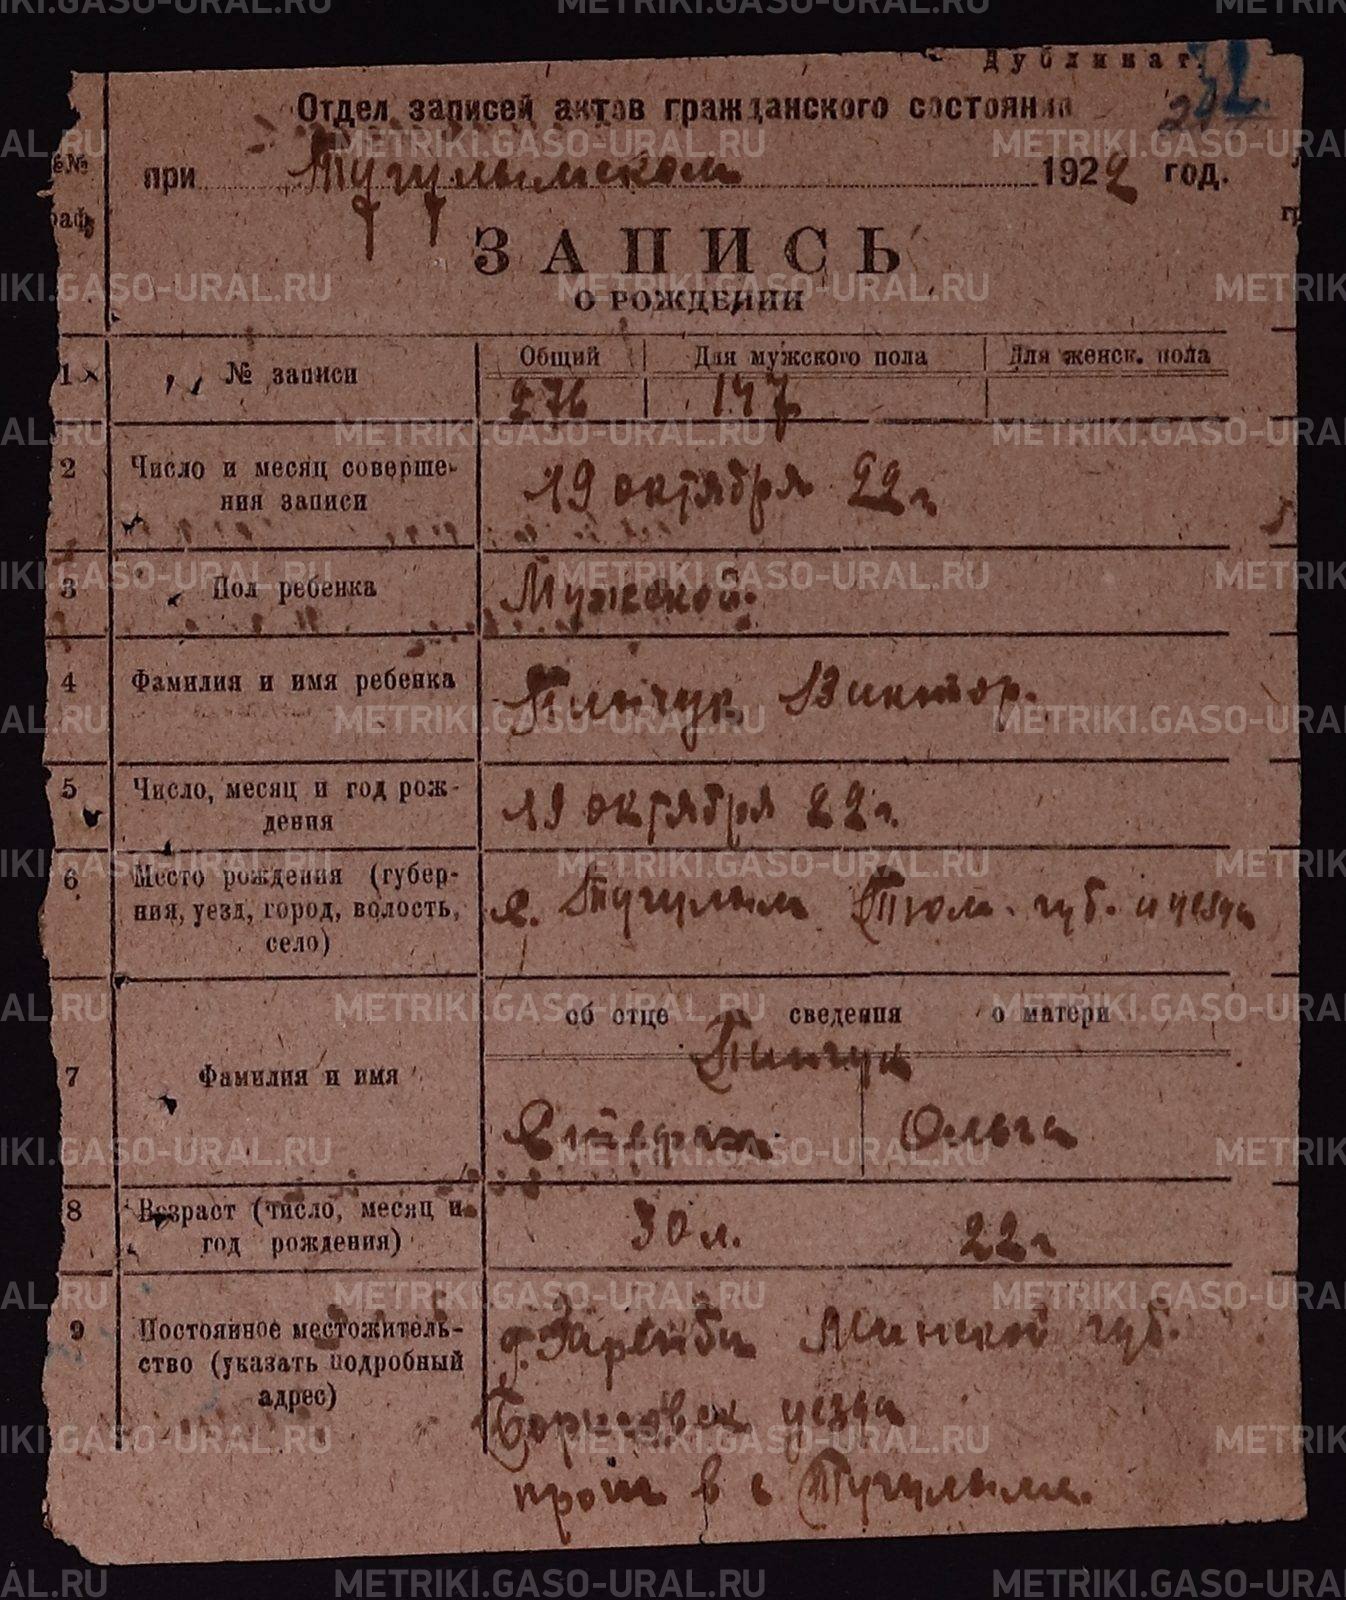 Дубликат.
32
Отдел записей актов гражданского состояния
при Тугулымском 1922 год.
№№
раф.
ЗАПИСЬ
О РОЖДЕНИИ
1 № записи Общий Для мужского пола Для женск. пола
276 147
2 Число и месяц соверше-
ния записи
19 октября 22 г
3 Пол ребенка Мужской.
4 Фамилия и имя ребенка Пинчук Виктор.
5 Число, месяц и год рож-
дения
19 октября 22 г.
6 Место рождения (губер-
ния, уезд, город, волость,
село)
с. Тугулым Тюм. губ. и уезда
об отце сведения о матери
7 Фамилия и имя Пинчук
Стефан Ольга
8 Возраст (число, месяц и
год рождения)
30 л. 22 г
9 Постоянное местожитель-
ство (указать подробный
адрес)
д. Минской губ.
Борисовск уезда
прож в с Тугулыме.
METRIKI.GASO-URAL.RU